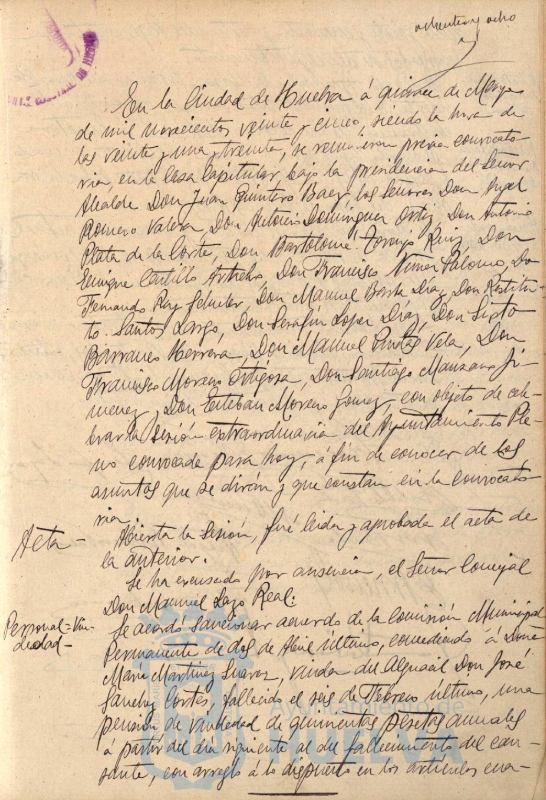 ochenta y ocho
En la Ciudad de Huelva á quince de Mayo
de mil novecientos veinte y cinco, siendo la hora de
las veinte y una y treinta, se reunieron previa convocato
ria, en la Casa Capitular, bajo la presidencia del Señor
Alcalde Don Juan Quintero Baez, los Señores Don Angel
Romero Valera, Don Antonio Dominguez Ortiz, Don Antonio
Plata de la Corte, Don Bartolomé Toronjo Ruiz, Don
Enrique Castillo Don Francisco Nuñez Palomo, Don
Fernando Rey Don Manuel Barba Diaz, Don Restitu-
to Santos Largo, Don Serafin Lopez Diaz, Don Sixto
Barranco Herrera, Don Manuel Vela, Don
Francisco Moreno Ortigosa, Don Santiago Manzano Ji
menez, y Don Esteban Moreno Gomez, con objeto de cele-
brar la sesión extraordinaria del Ayuntamiento Ple-
no convocada para hoy, á fin de conocer de los
asuntos que se dirán y que constan en la convocato
ria.
Acta- Abierta la sesión, fué leida y aprobada el acta de
la anterior.
Se ha excusado por ausencia, el Señor Concejal
Don Manuel Lazo Real.
Personal=Viu-
dedad- Se acordó sancionar acuerdo de la Comisión Municipal
Permanente de dos de Abril último, concediendo á Doña
Maria Martinez Suarez, viuda del Alguacil Don José
Sanchez Cortés, fallecido el seis de Febrero último, una
pensión de viudedad de quinientas pesetas anuales
a partir del dia siguiente al del fallecimiento del cau-
sante, con arreglo á lo dispuesto en los articulos cua-
Ayuntamiento de
HUELVA